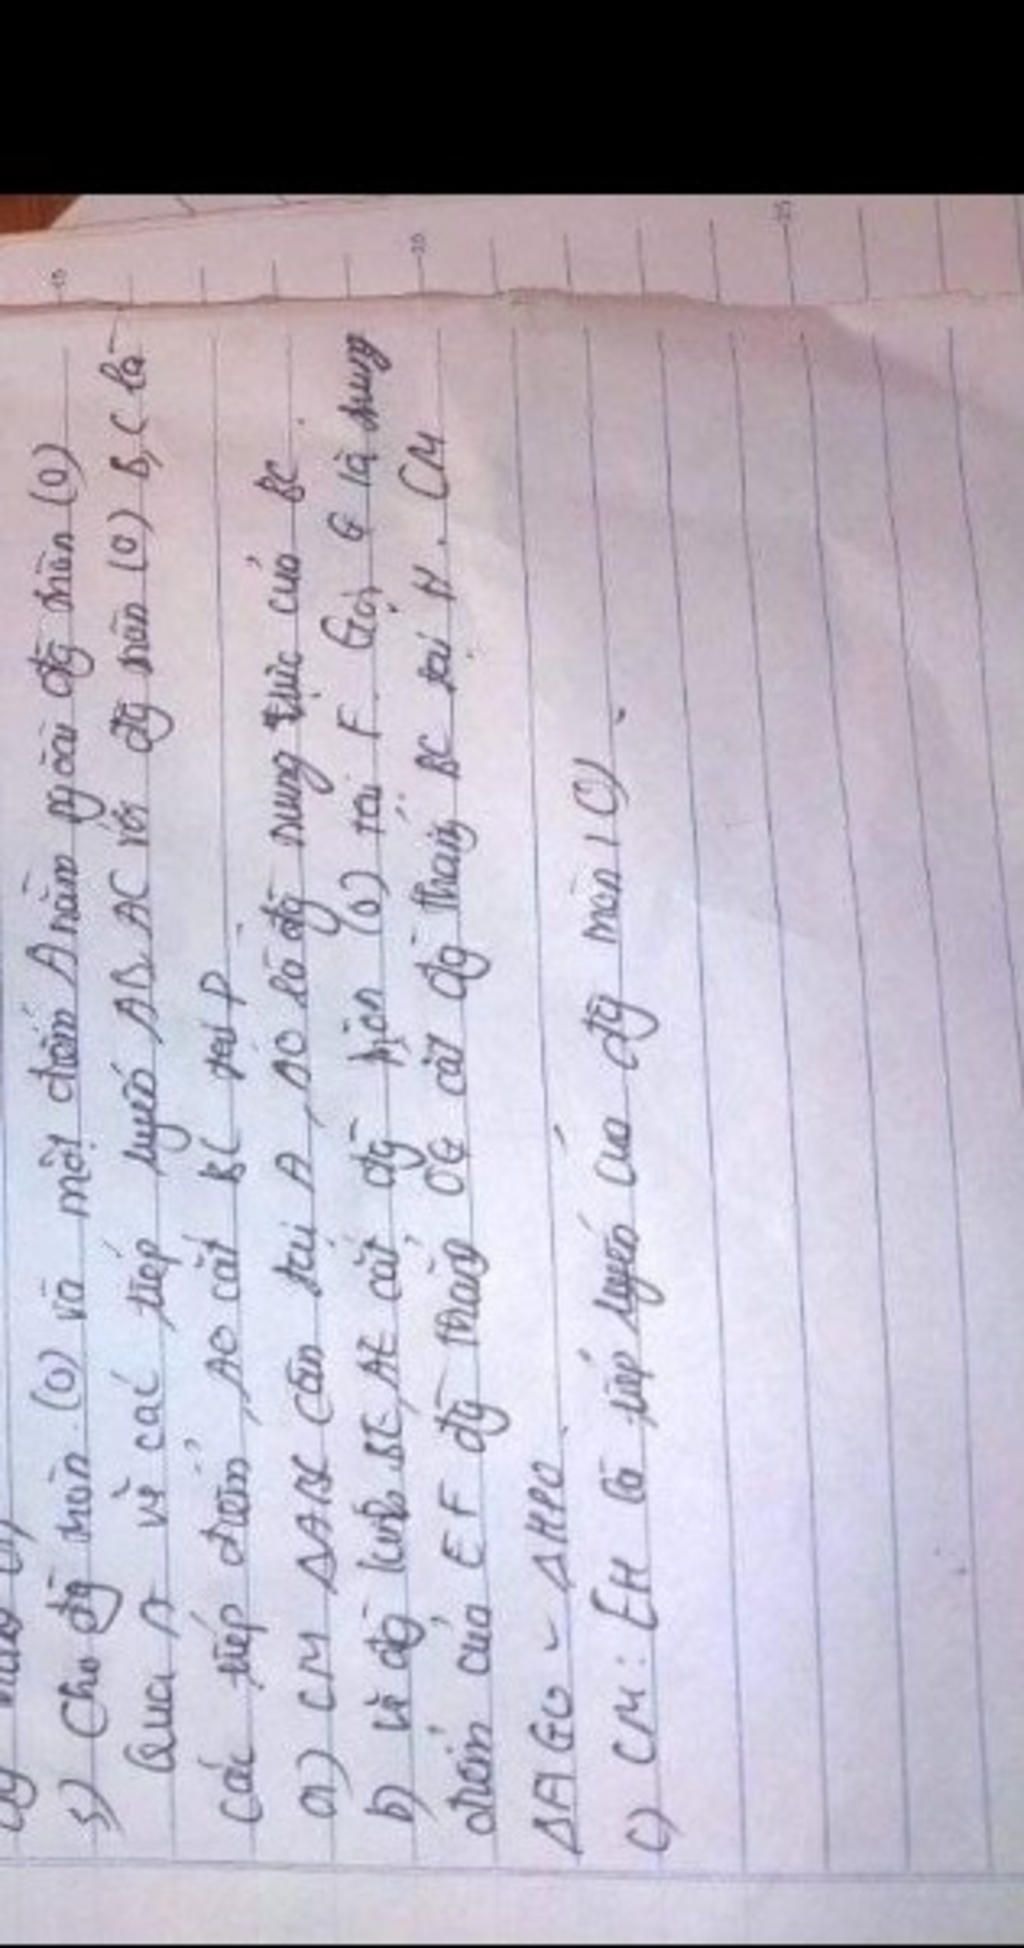 5) Cho đg tròn (O) và một điểm A nằm ngoài đg tròn (O)
Qua A vẽ các tiếp tuyến AB, AC với đg tròn (O) B, C là
các tiếp điểm, AO cắt BC tại P.
a) CM ΔABC cân tại A, AO là đg trung trực của BC.
b) vẽ đg kính BE, AE cắt đg tròn (O) tại F. Gọi G là trung
điểm của EF đg thẳng OG cắt đg thẳng BC tại H. CM
ΔAGO ~ ΔHPO.
c) CM: EH là tiếp tuyến của đg tròn (O).
15
20
25